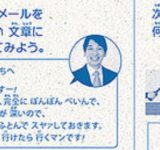 メールを
文章に
てみよう。
ちへ
すー!
完全に ぽんぽん ぺいんで、
が 深いので、
ふとんで スヤァしておきます。
行けたら 行くマンです!
次
何